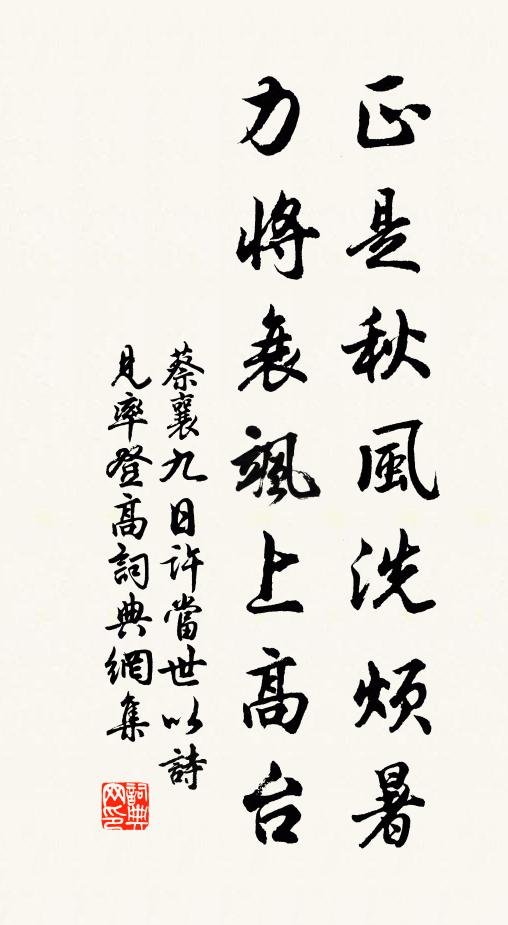 正是秋風洗煩暑
力將衰颯上高台
蔡襄九日許當世以詩
見率登高詞典網集
詞典
网印